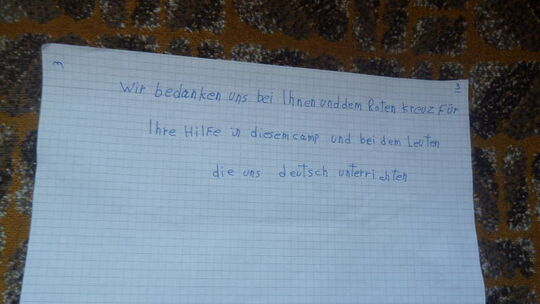 3
Wir bedanken uns bei Ihnen und dem Roten Kreuz Für
Ihre Hilfe in diesem camp und bei dem Leuten
die uns deutsch unterrichten